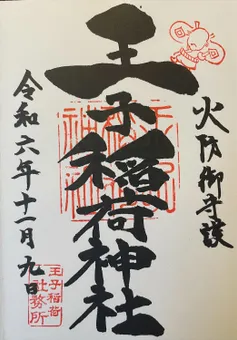 火防御守護
王子稲荷神社
令和六年十一月九日
王子稲荷
社務所